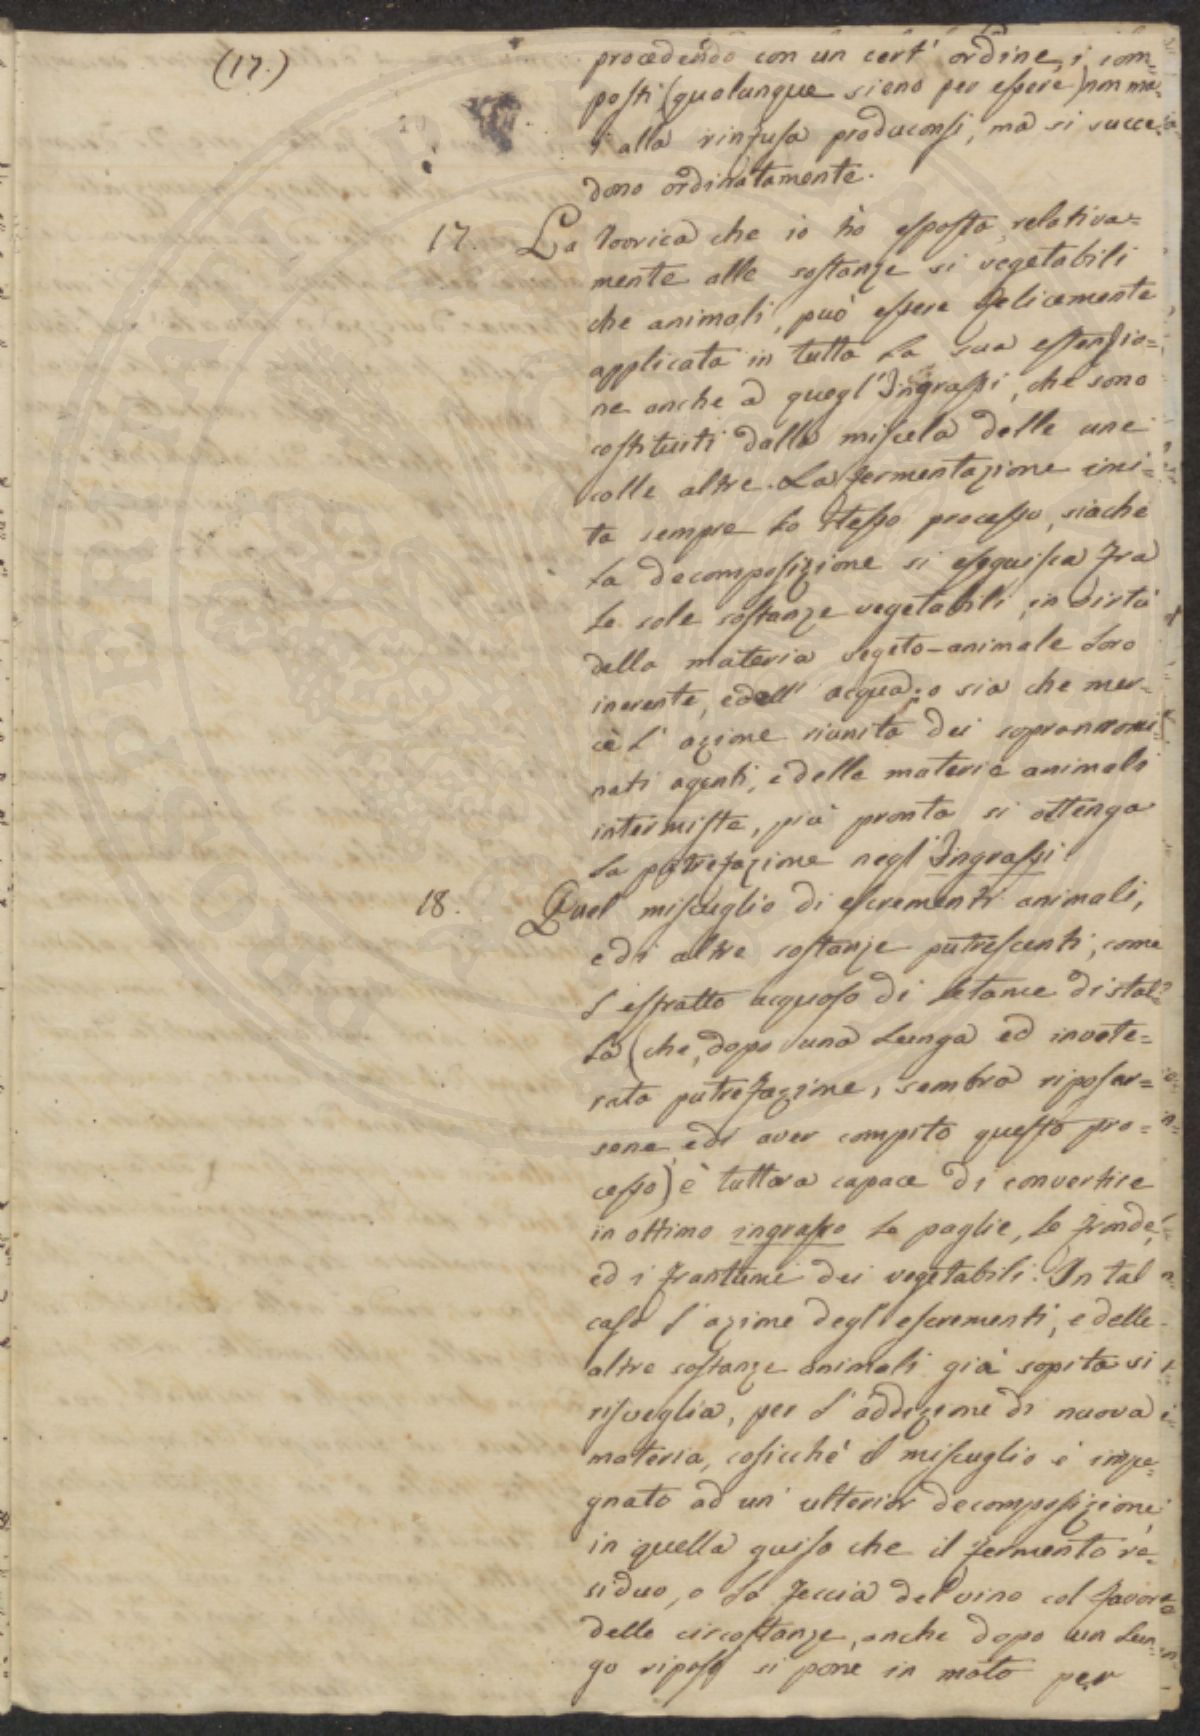 (17.)
procedendo con un cert' ordine, i com=
posti (qualunque sieno per essere) non ma=
i alla rinfusa produconsi, ma si succe=
dono ordinatamente.
17. La Teorica che io hò esposta relativa=
mente alle sostanze si vegetabili
che animali, può essere felicemente
applicata in tutta la sua estensio=
ne anche a quegl' Ingrassi, che sono
costituiti dalla miscela delle une
colle altre. La fermentazione imi=
ta sempre lo stesso processo, siache
la decomposizione si eseguisca fra
le sole sostanze vegetabili, in virtù
della materia vegeto-animale loro
inerente, e dell' acqua; o sia che mer=
cè l' azione riunita dei sopranomi=
nati agenti, e delle materie animali
intermiste, più pronta si ottenga
la putrefazione negl' Ingrassi.
18. Quel miscuglio di escrementi animali,
e di altre sostanze putrescenti, come
l' estratto acquoso di letame di stal=
la (che, dopo una lunga ed invete=
rata putrefazione, sembra riposar=
sene, e di aver compito questo pro=
cesso) è tuttora capace di convertire
in ottimo ingrasso le paglie, le fronde,
ed i frantumi dei vegetabili. In tal
caso l' azione degl' escrementi, e delle
altre sostanze animali già sopita si
risveglia, per l' addizione di nuova
materia, cosicchè il miscuglio è impe=
gnato ad un' ulterior decomposizione,
in quella guisa che il fermento re=
siduo, o la feccia del vino col favore
delle circostanze, anche dopo un lun=
go riposo si pone in moto per